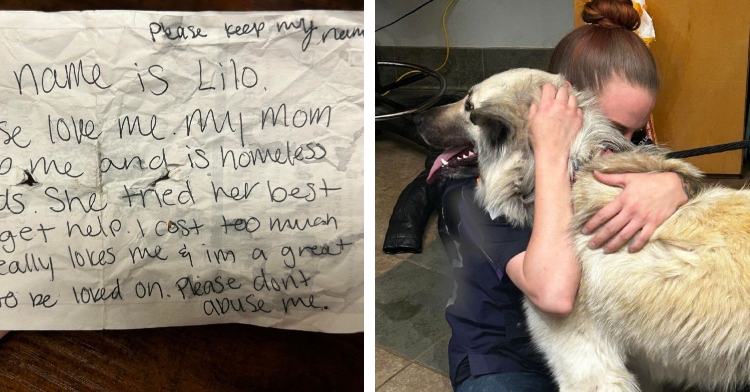 Please keep my nam
name is Lilo.
se love me. My mom
me and is homeless
ds. She tried her best
get help. I cost too much
eally loves me & im a great
o be loved on. Please dont
abuse me.